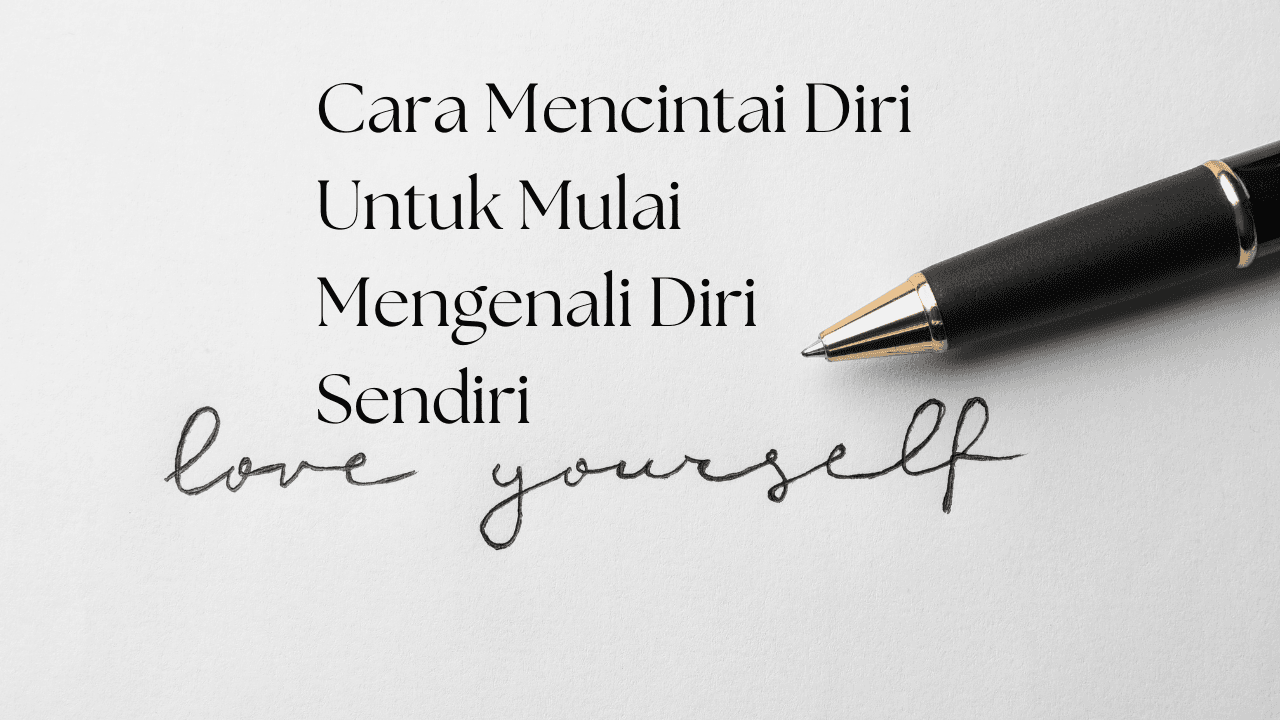 Cara Mencintai Diri
Untuk Mulai
Mengenali Diri
Sendiri
love yourself